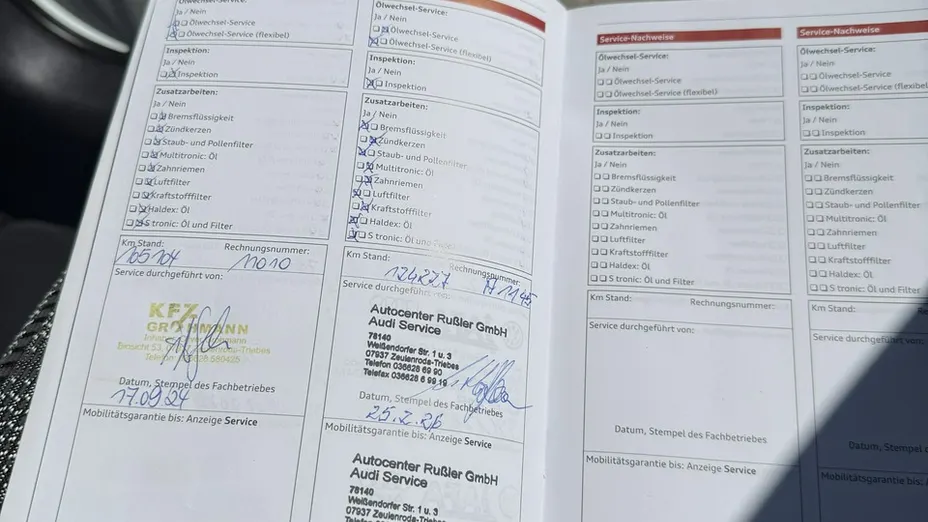 Ja / Nein
Ölwechsel-Service
Ölwechsel-Service (flexibel)
Inspektion:
Ja / Nein
Inspektion
Zusatzarbeiten:
Ja / Nein
Bremsflüssigkeit
Zündkerzen
Staub- und Pollenfilter
Multitronic: Öl
Zahnriemen
Luftfilter
Kraftstofffilter
Haldex: Öl
S tronic: Öl und Filter
Km Stand: Rechnungsnummer:
105104 11010
Service durchgeführt von:
KFZ
GROHMANN
Datum, Stempel des Fachbetriebes
17.09.24
Mobilitätsgarantie bis: Anzeige Service
Ölwechsel-Service:
Ja / Nein
Ölwechsel-Service
Ölwechsel-Service (flexibel)
Inspektion:
Ja / Nein
Inspektion
Zusatzarbeiten:
Ja / Nein
Bremsflüssigkeit
Zündkerzen
Staub- und Pollenfilter
Multitronic: Öl
Zahnriemen
Luftfilter
Kraftstofffilter
Haldex: Öl
S tronic: Öl und
Km Stand: Rechnungsnummer:
124227
Service durchgeführt von:
Autocenter Rußler GmbH
Audi Service
78140
Weißendorfer Str. 1 u. 3
07937 Zeulenroda-Triebes
Telefon 036628 69 90
Telefax 036628 6 99 19
Datum, Stempel des Fachbetriebes
25.2.26
Mobilitätsgarantie bis: Anzeige Service
Autocenter Rußler GmbH
Audi Service
78140
Weißendorfer Str. 1 u. 3
07937 Zeulenroda-Triebes
Service-Nachweise
Ölwechsel-Service:
Ja / Nein
Ölwechsel-Service
Ölwechsel-Service (flexibel)
Inspektion:
Ja / Nein
Inspektion
Zusatzarbeiten:
Ja / Nein
Bremsflüssigkeit
Zündkerzen
Staub- und Pollenfilter
Multitronic: Öl
Zahnriemen
Luftfilter
Kraftstofffilter
Haldex: Öl
S tronic: Öl und Filter
Km Stand: Rechnungsnummer:
Service durchgeführt von:
Datum, Stempel des Fachbetriebes
Mobilitätsgarantie bis: Anzeige Service
Service-Nachweise
Ölwechsel-Service:
Ja / Nein
Ölwechsel-Service
Ölwechsel-Service (flexibel
Inspektion:
Ja / Nein
Inspektion
Zusatzarbeiten:
Ja / Nein
Bremsflüssigkeit
Zündkerzen
Staub- und Pollenfilter
Multitronic: Öl
Zahnriemen
Luftfilter
Kraftstofffilter
Haldex: Öl
S tronic: Öl und Filte
Km Stand: Rechnungsnumme
Service durchgeführt von:
Datum, Stempel des
Mobilitätsgarantie bis: Anzeige